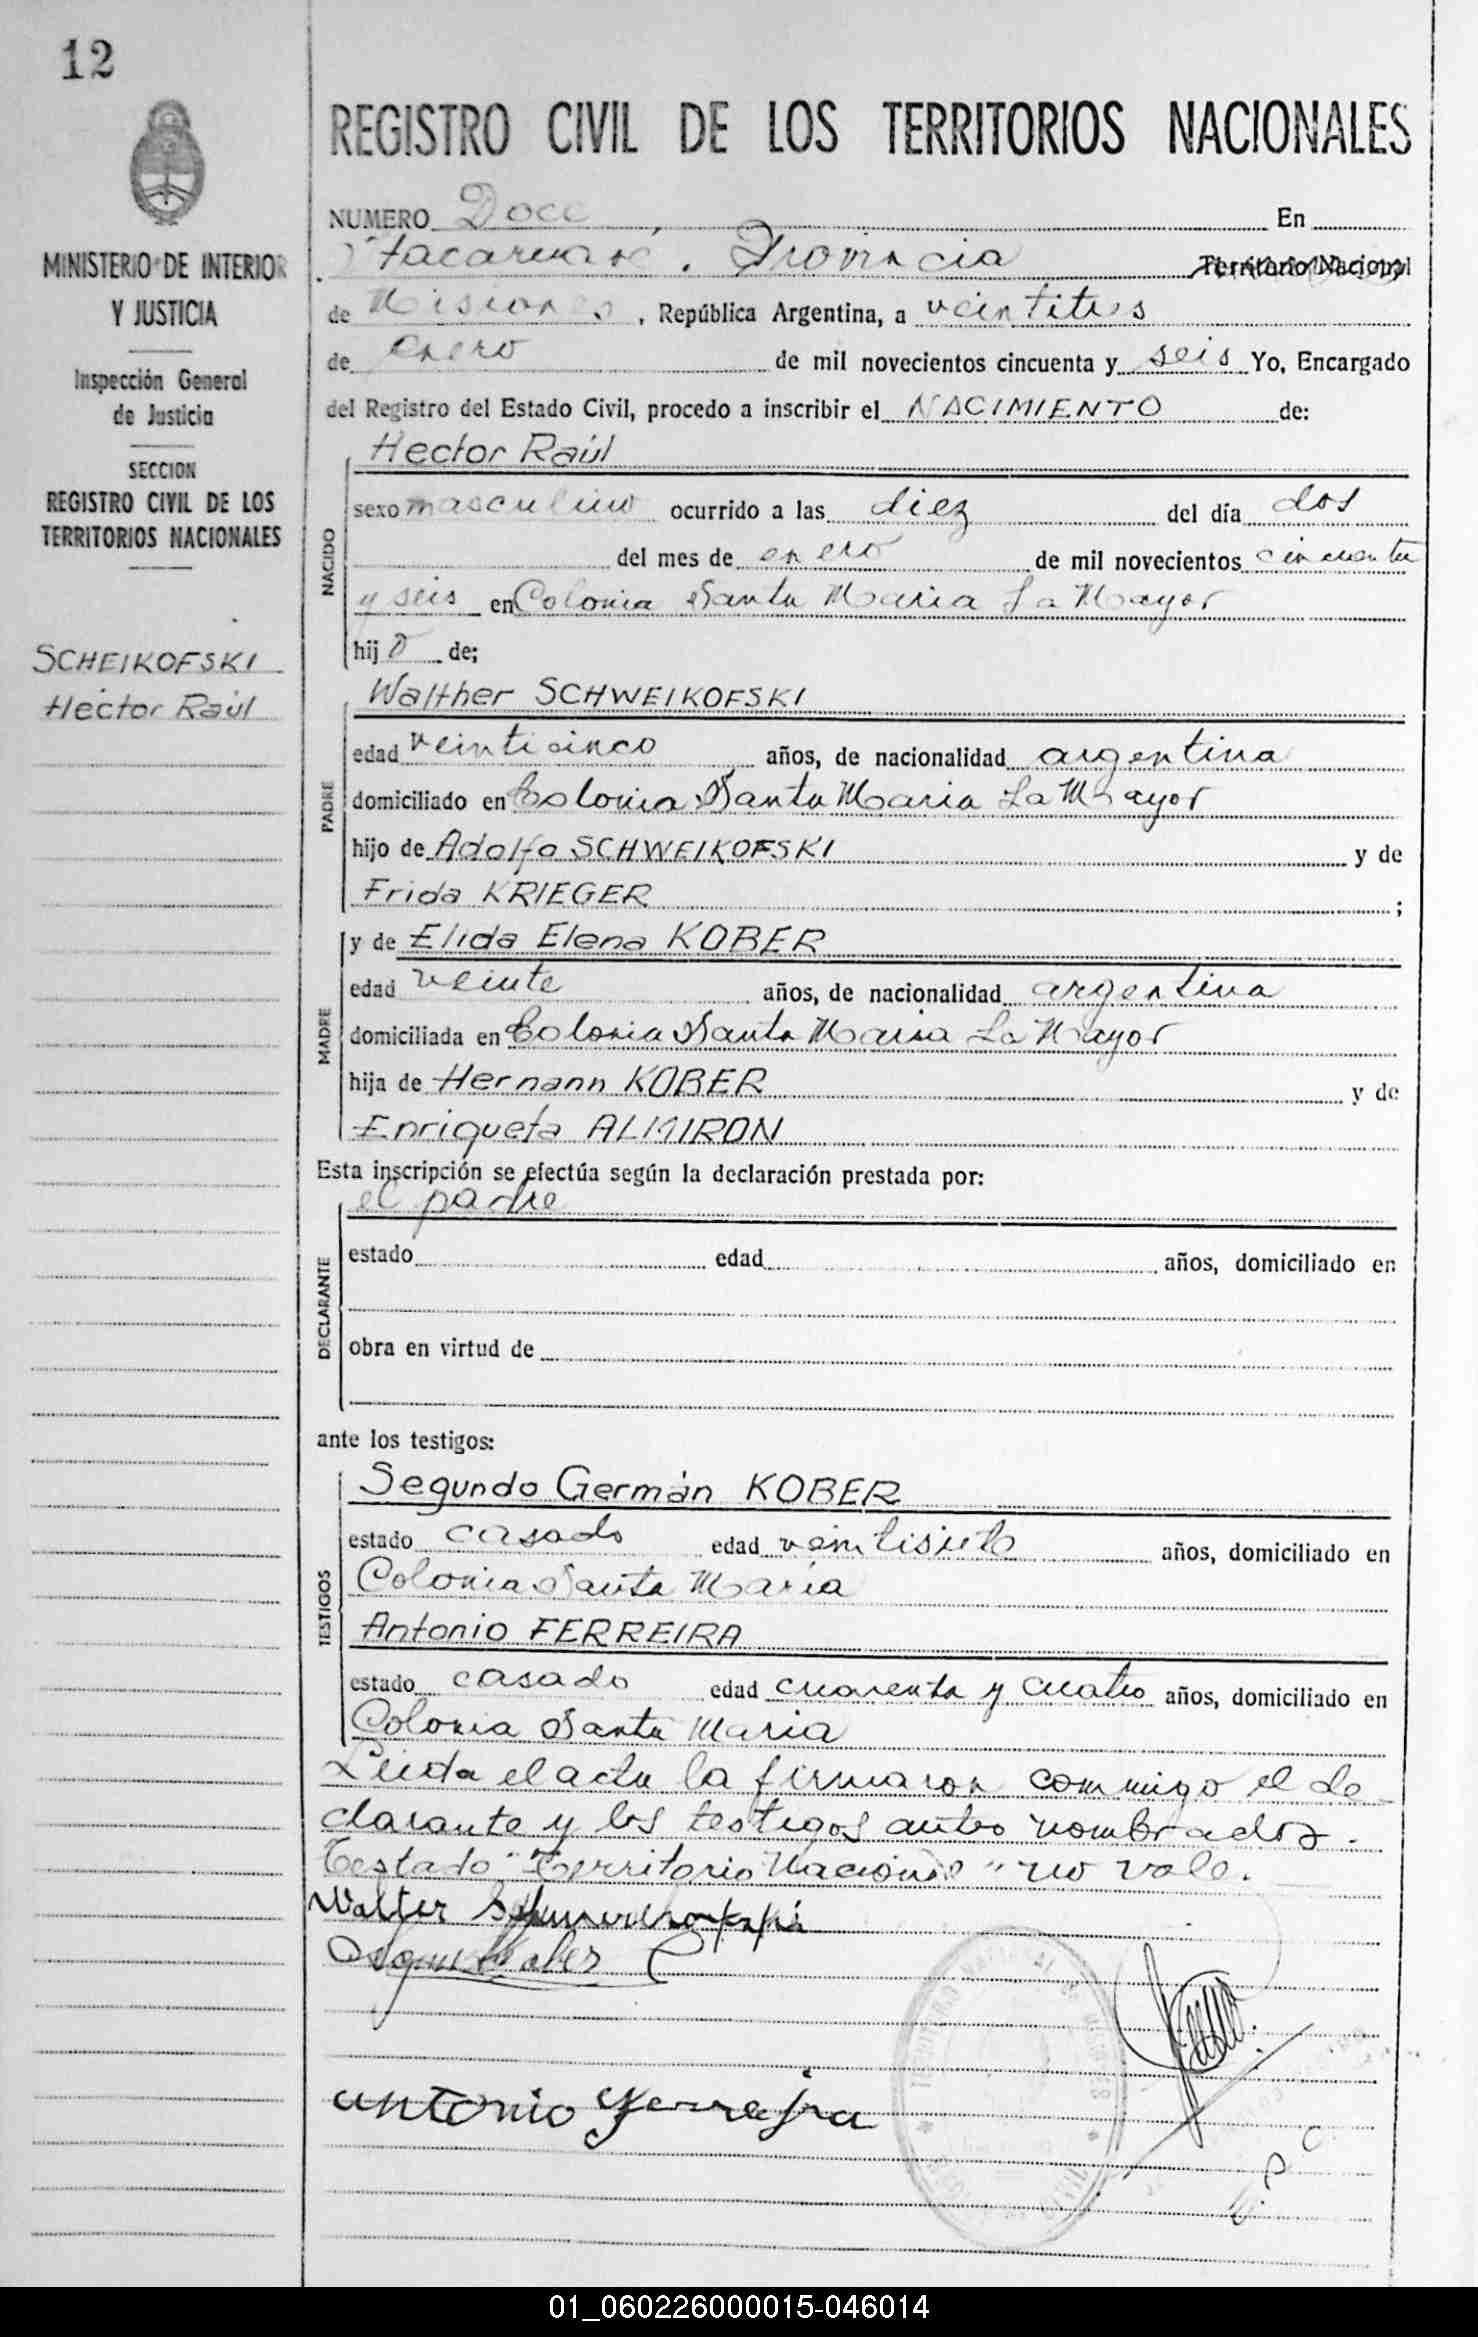 12
MINISTERIO DE INTERIOR
Y JUSTICIA
Inspección General
de Justicia
SECCION
REGISTRO CIVIL DE LOS
TERRITORIOS NACIONALES
SCHEIKOFSKI
Héctor Raúl
REGISTRO CIVIL DE LOS TERRITORIOS NACIONALES
NUMERO Doce, En
Itacaruaré. Provincia Territorio Nacional
de Misiones, República Argentina, a veintitres
de enero de mil novecientos cincuenta y seis Yo, Encargado
del Registro del Estado Civil, procedo a inscribir el NACIMIENTO de:
NACIDO
Hector Raúl
sexo masculino ocurrido a las diez del día dos
del mes de enero de mil novecientos cincuenta
y seis en Colonia Santa Maria La Mayor
hijo de;
PADRE
Walther SCHWEIKOFSKI
edad veinticinco años, de nacionalidad argentina
domiciliado en Colonia Santa Maria La Mayor
hijo de Adolfo SCHWEIKOFSKI y de
Frida KRIEGER ;
MADRE
y de Elida Elena KOBER
edad veinte años, de nacionalidad argentina
domiciliada en Colonia Santa Maria La Mayor
hija de Hernann KOBER y de
Enriqueta ALMIRON
Esta inscripción se efectúa según la declaración prestada por:
DECLARANTE
el padre
estado edad años, domiciliado en
obra en virtud de
ante los testigos:
TESTIGOS
Segundo Germán KOBER
estado casado edad veintisiete años, domiciliado en
Colonia Santa María
Antonio FERREIRA
estado casado edad cuarenta y cuatro años, domiciliado en
Colonia Santa Maria
Leida el acta la firmaron conmigo el de-
clarante y los testigos antes nombrados.
Testado "Territorio Nacional" no vale.
Walter
antonio ferrejra
01_060226000015-046014